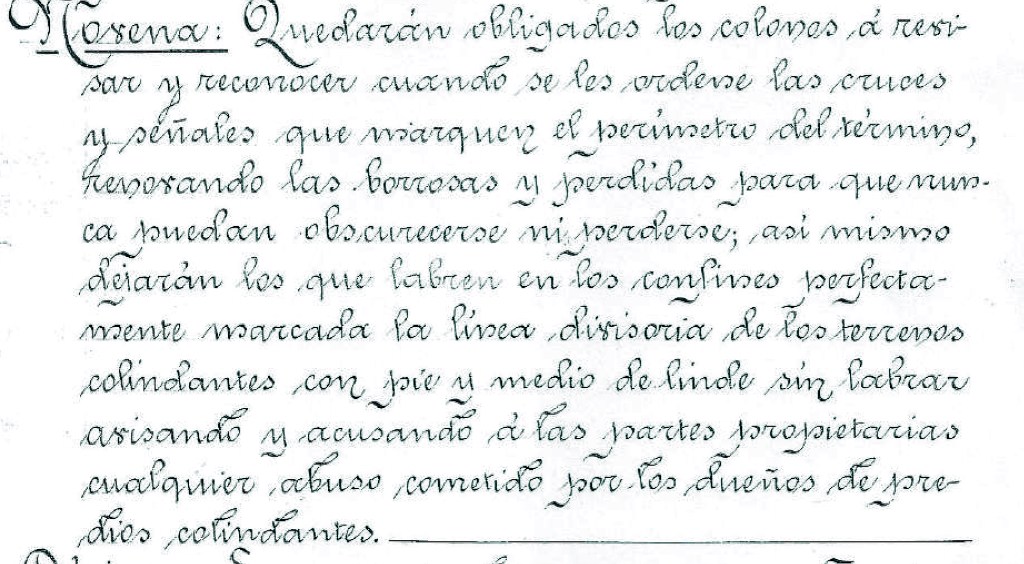 Novena: Quedarán obligados los colonos á revi-
sar y reconocer cuando se les ordene las cruces
y señales que marquen el perímetro del término,
renovando las borrosas y perdidas para que nun-
ca puedan obscurecerse ni perderse; así mismo
dejarán los que labren en los confines perfecta-
mente marcada la línea divisoria de los terrenos
colindantes con pie y medio de linde sin labrar
avisando y acusando á las partes propietarias
cualquier abuso cometido por los dueños de pre-
dios colindantes.